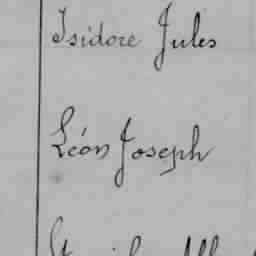 Isidore Jules
Léon Joseph